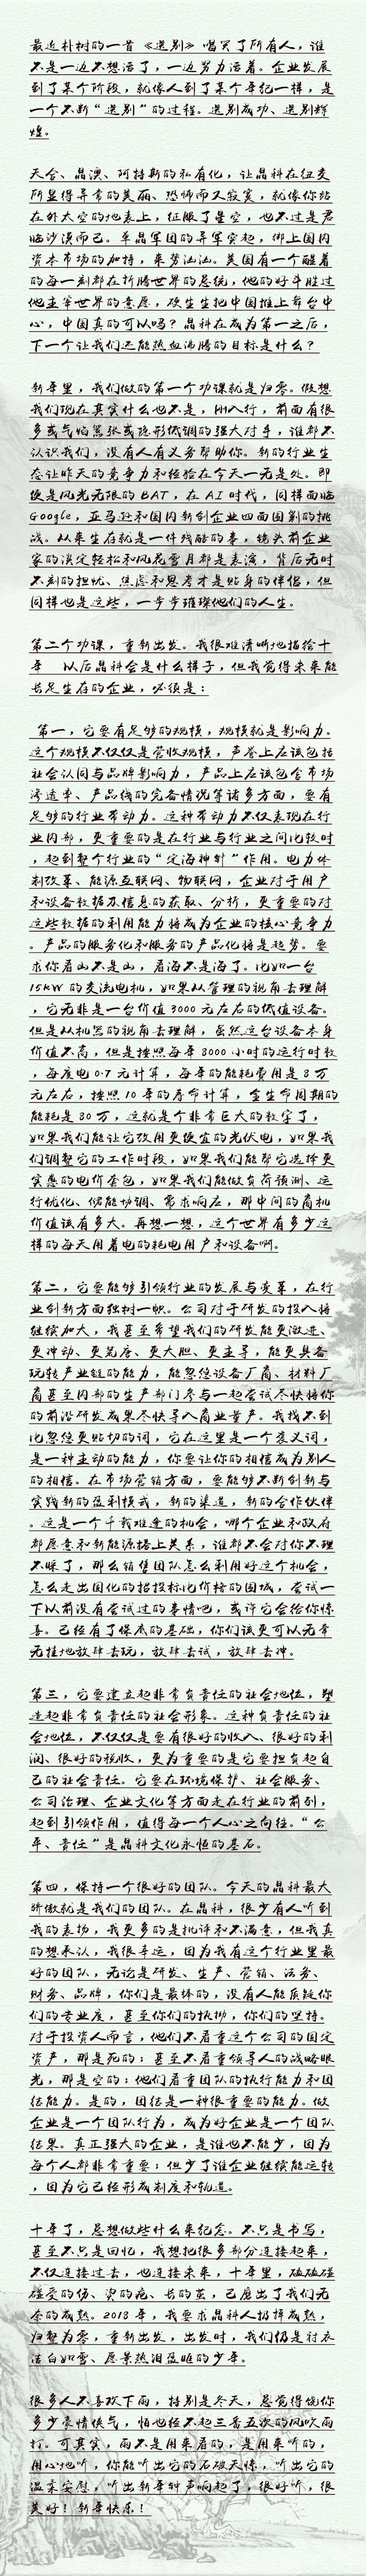 最近朴树的一首《送别》唱哭了所有人，谁
不是一边不想活了，一边努力活着。企业发展
到了某个阶段，就像人到了某个年纪一样，是
一个不断“送别”的过程。送别成功、送别辉
煌。
天合、晶澳、阿特斯的私有化，让晶科在纽交
所显得异常的美丽、恐怖而又寂寞，就像你站
在外太空的地表上，征服了星空，也不过是君
临沙漠而已。单晶军团的异军突起，绑上国内
资本市场的加持，来势汹汹。美国有一个醒着
的每一刻都在折腾世界的总统，他的好斗胜过
他主宰世界的意愿，硬生生把中国推上舞台中
心，中国真的可以吗？晶科在成为第一之后，
下一个让我们还能热血沸腾的目标是什么？
新年里，我们做的第一个功课就是归零。假想
我们现在真实什么也不是，刚入行，前面有很
多或气焰嚣张或隐形低调的强大对手，谁都不
认识我们，没有人有义务帮助你。新的行业生
态让昨天的竞争力和经验在今天一无是处。即
便是风光无限的BAT，在AI时代，同样面临
Google，亚马逊和国内新创企业四面围剿的挑
战。从来生存就是一件残酷的事，镜头前企业
家的淡定轻松和风花雪月都是表演，背后无时
不刻的担忧、焦虑和思考才是贴身的伴侣，但
同样也是这些，一步步璀璨他们的人生。
第二个功课，重新出发。我很难清晰地描绘十
年 以后晶科会是什么样子，但我觉得未来能
长足生存的企业，必须是：
第一，它要有足够的规模，规模就是影响力。
这个规模不仅仅是营收规模，声誉上应该包括
社会认同与品牌影响力，产品上应该包含市场
渗透率、产品线的完备情况等诸多方面，要有
足够的行业带动力。这种带动力不仅表现在行
业内部，更重要的是在行业与行业之间比较时
，起到整个行业的“定海神针”作用。电力体
制改革、能源互联网、物联网，企业对于用户
和设备数据信息的获取、分析，更重要的对
这些数据的利用能力将成为企业的核心竞争力
。产品的服务化和服务的产品化将是趋势。要
求你看山不是山，看海不是海了。比如一台
15KW的交流电机，如果从管理的视角去理解
，它无非是一台价值3000元左右的低值设备。
但是从机器的视角去理解，虽然这台设备本身
价值不高，但是按照每年8000小时的运行时数
，每度电0.7元计算，每年的能耗费用是8万
元左右，按照10年的寿命计算，全生命周期的
能耗是80万，这就是个非常巨大的数字了，
如果我们能让它改用更便宜的光伏电，如果我
们调整它的工作时段，如果我们能帮它选择更
实惠的电价套包，如果我们能做负荷预测、运
行优化、储能协调、需求响应，那中间的商机
价值该有多大。再想一想，这个世界有多少这
样的每天用着电的耗电用户和设备啊。
第二，它要能够引领行业的发展与变革，在行
业创新方面独树一帜。公司对于研发的投入将
继续加大，我甚至希望我们的研发能更激进、
更冲动、更宽容、更大胆、更主导，能更具备
玩转产业链的能力，能忽悠设备厂商、材料厂
商甚至内部的生产部门参与一起尝试尽快将你
的前沿研发成果尽快导入商业量产。我找不到
比忽悠更贴切的词，它在这里是一个褒义词，
是一种主动的能力，你要让你的相信成为别人
的相信。在市场营销方面，要能够不断创新与
实践新的盈利模式，新的渠道，新的合作伙伴
。这是一个千载难逢的机会，哪个企业和政府
都愿意和新能源搭上关系，谁都不会对你不理
不睬了，那么销售团队怎么利用好这个机会，
怎么走出固化的招投标比价格的围城，尝试一
下以前没有尝试过的事情吧，或许它会给你惊
喜。已经有了保底的基础，你们该更可以无牵
无挂地放肆去玩，放肆去试，放肆去冲。
第三，它要建立起非常负责任的社会地位，塑
造起非常负责任的社会形象。这种负责任的社
会地位，不仅仅是要有很好的收入、很好的利
润、很好的税收，更为重要的是它要担负起自
己的社会责任。它要在环境保护、社会服务、
公司治理、企业文化等方面走在行业的前列，
起到引领作用，值得每一个人心之向往。“公
平、责任”是晶科文化永恒的基石。
第四，保持一个很好的团队。今天的晶科最大
骄傲就是我们的团队。在晶科，很少有人听到
我的表扬，我更多的是批评和不满意，但我真
的想承认，我很幸运，因为我有这个行业里最
好的团队，无论是研发、生产、营销、法务、
财务、品牌，你们是最棒的，没有人能质疑你
们的专业度，甚至你们的执拗，你们的坚持。
对于投资人而言，他们不看重这个公司的固定
资产，那是死的；甚至不看重领导人的战略眼
光，那是空的；他们看重团队的执行能力和团
结能力。是的，团结是一种很重要的能力。做
企业是一个团队行为，成为好企业是一个团队
结果。真正强大的企业，是谁也不能少，因为
每个人都非常重要；但少了谁企业继续能运转
，因为它已经形成制度和轨道。
十年了，总想做些什么来纪念。不只是书写，
甚至不只是回忆，我想把很多部分连接起来，
不仅连接过去，也连接未来，十年里，磕磕碰碰
碰受的伤、烫的疤、长的茧，已磨出了我们无
奈的成熟。2018年，我要求晶科人扔掉成熟，
归整为零，重新出发，出发时，我们仍是衬衣
洁白如雪、愿景热泪盈眶的少年。
很多人不喜欢下雨，特别是冬天，总觉得饶你
多少豪情侠气，怕也经不起三番五次的风吹雨
打。可其实，雨不是用来看的，是用来听的，
用心地听，你能听出它的石破天惊，听出它的
温柔安慰，听出新年钟声响起了，很好听，很
美好！新年快乐！